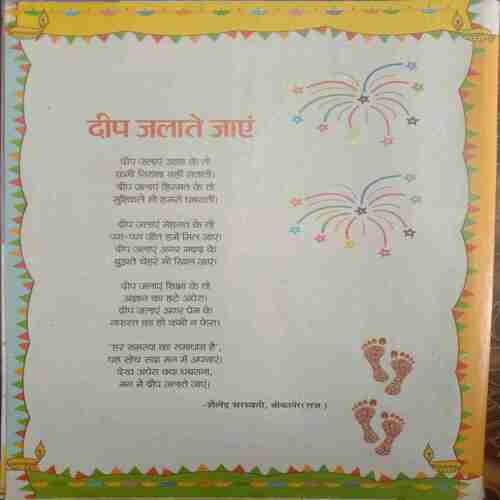 दीप जलाते जाएं
दीप जलाएं आशा के तो
कभी निराशा नहीं सताती।
दीप जलाएं हिम्मत के तो
मुश्किलें भी हमसे घबराती।
दीप जलाएं मेहनत के तो
पग-पग जीत हमें मिल जाए।
दीप जलाएं अगर मदद के
बुझते चेहरे भी खिल जाएं।
दीप जलाएं शिक्षा के तो
अज्ञान का हटे अंधेरा।
दीप जलाएं अगर प्रेम के
नफरत का हो कभी न फेरा।
'हर समस्या का समाधान है',
यह सोच सदा मन में अपनाएं।
देख अंधेरा क्या घबराना,
मन में दीप जलाते जाएं।
-शैलेंद्र सरस्वती, बीकानेर (राज.)